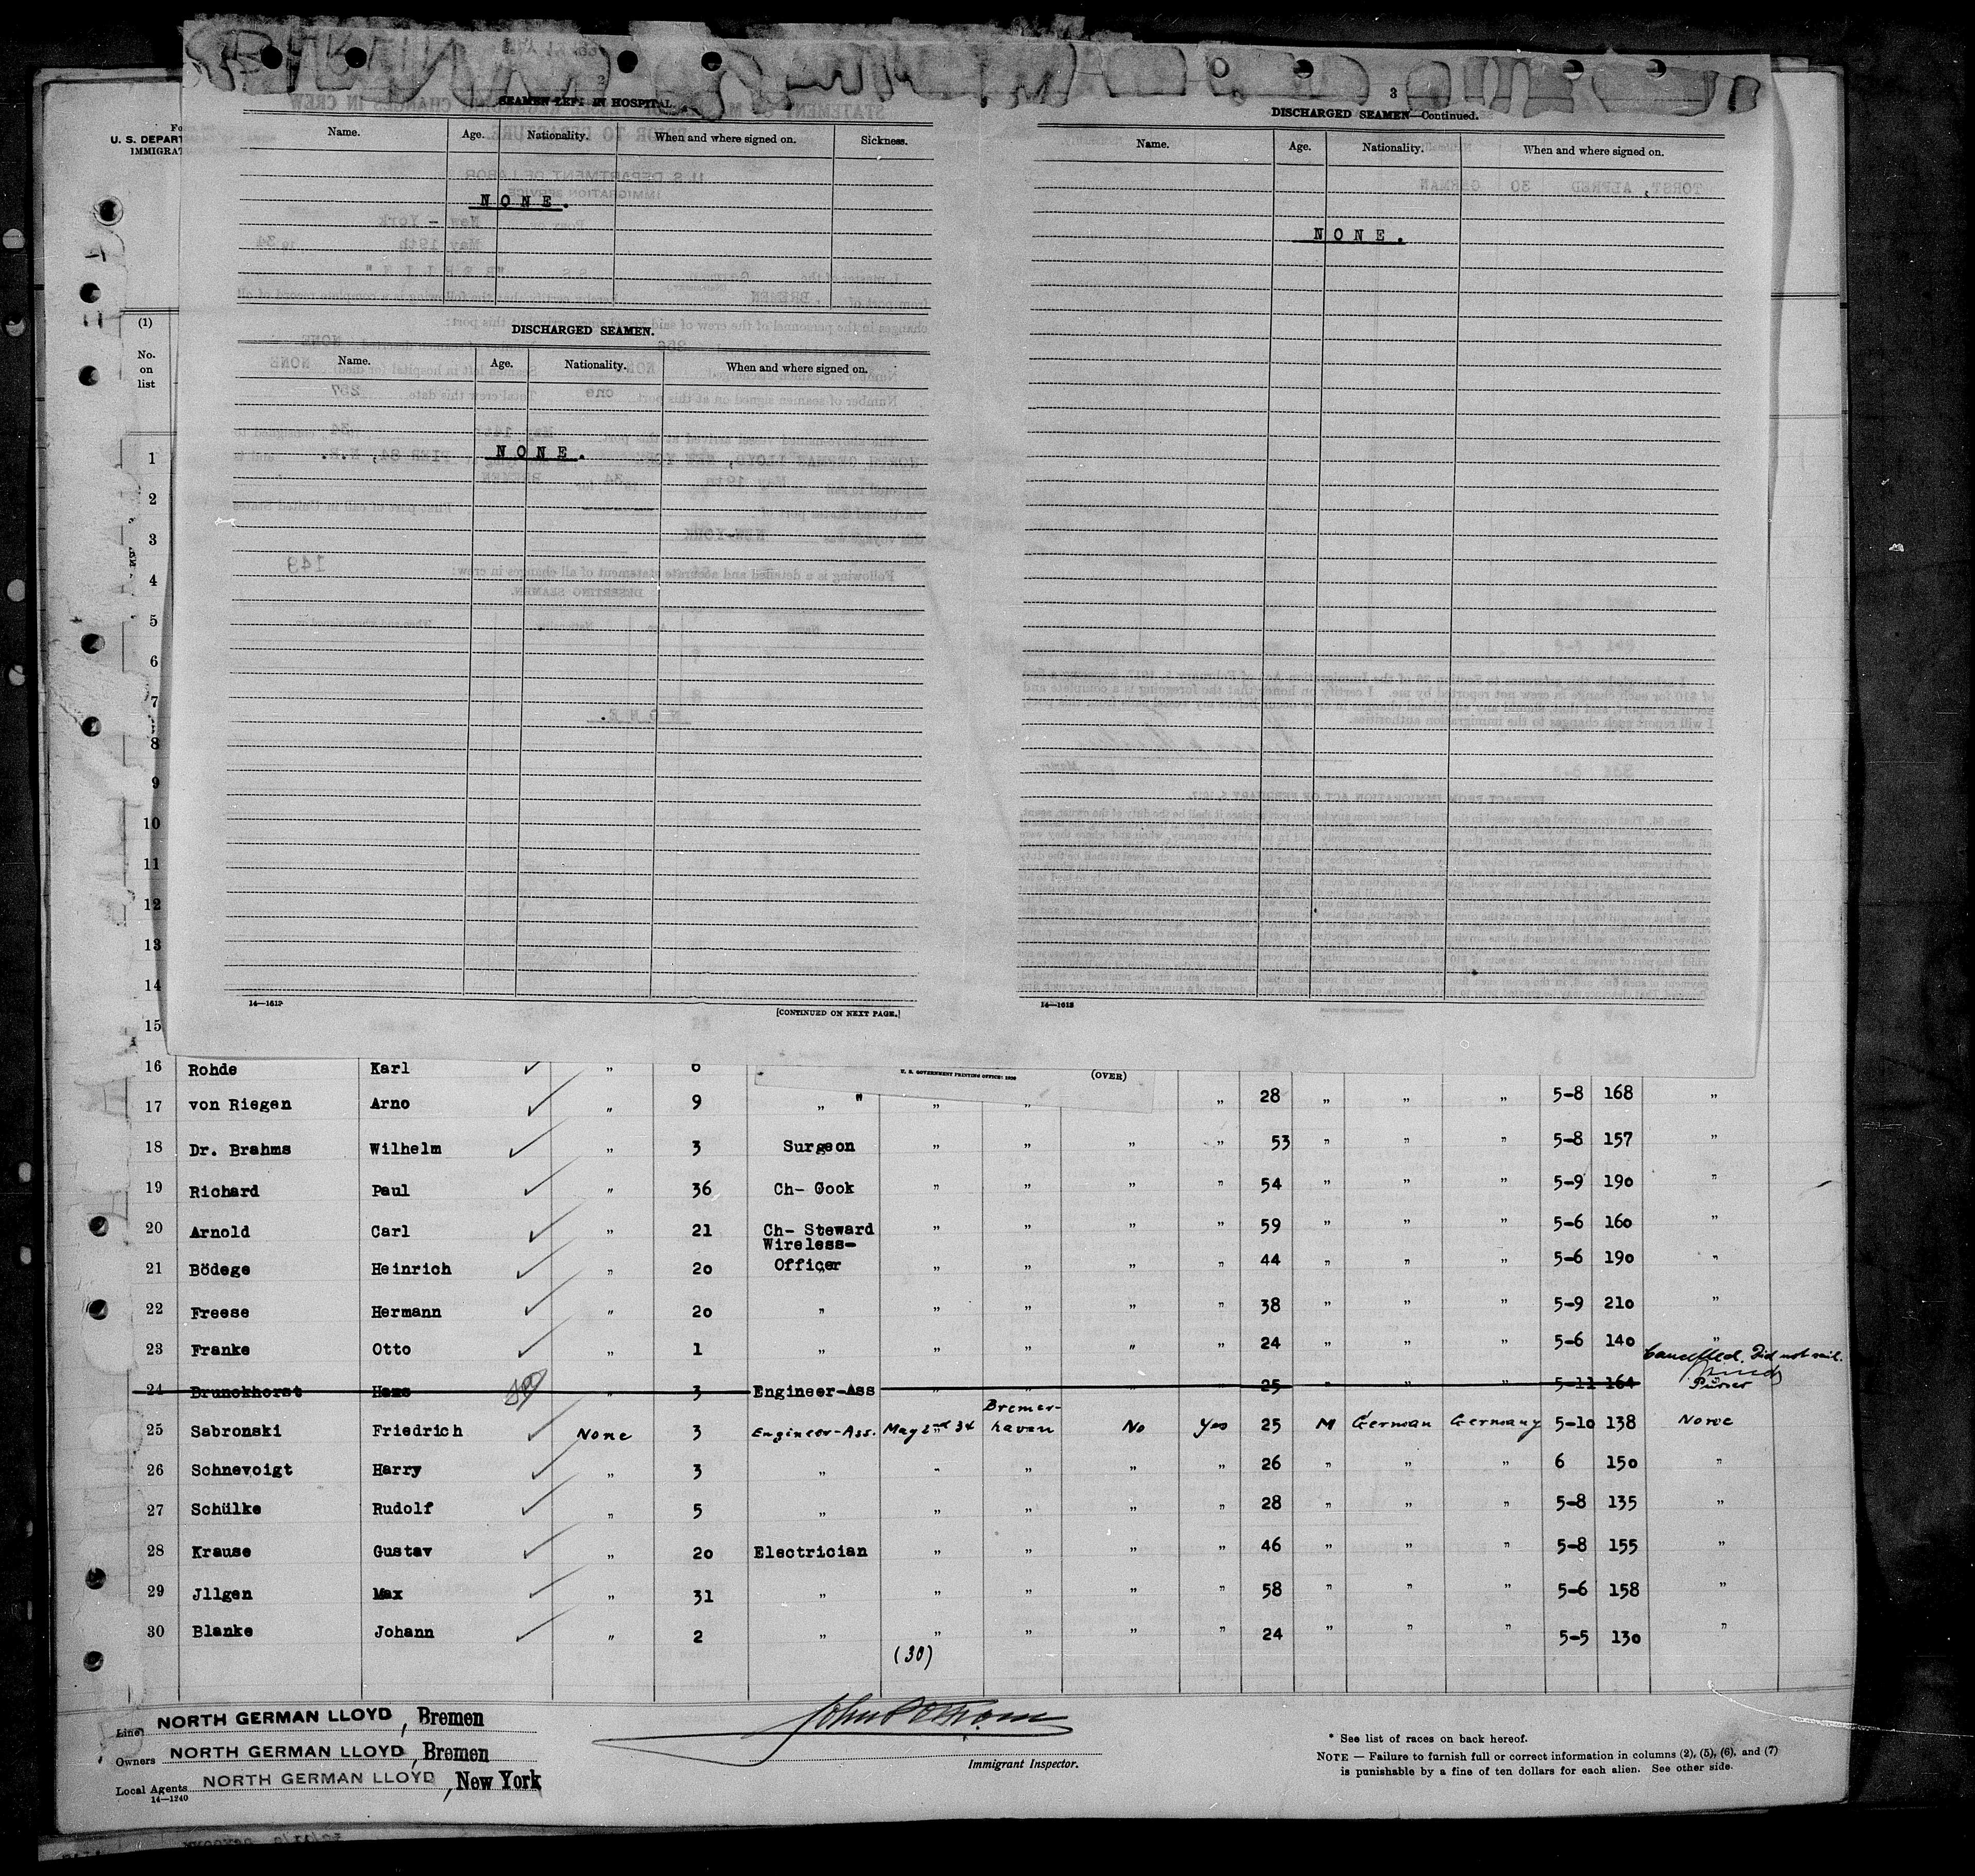 2
SEAMEN LEFT IN HOSPITAL
Name. Age. Nationality. When and where signed on. Sickness.
NONE.
DISCHARGED SEAMEN.
Name. Age. Nationality. When and where signed on.
NONE.
14—1612
[CONTINUED ON NEXT PAGE.]
3
DISCHARGED SEAMEN—Continued.
Name. Age. Nationality. When and where signed on.
NONE.
14—1612
U. S. DEPART
IMMIGRAT
(1)
No.
on
list
1
2
3
4
5
6
7
8
9
10
11
12
13
14
15
U. S. GOVERNMENT PRINTING OFFICE: 1930 (OVER)
16 Rohde Karl " 6
17 von Riegen Arno " 9 " " " " " " 28 " " " 5-8 168 "
18 Dr. Brahms Wilhelm " 3 Surgeon " " " " 53 " " " 5-8 157 "
19 Richard Paul " 36 Ch- Cook " " " " 54 " " " 5-9 190 "
20 Arnold Carl " 21 Ch- Steward " " " " 59 " " " 5-6 160 "
Wireless-
21 Bödege Heinrich " 20 Officer " " " " 44 " " " 5-6 190 "
22 Freese Hermann " 20 " " " " " 38 " " " 5-9 210 "
23 Franke Otto " 1 " " " " " 24 " " " 5-6 140 "
Cancelled. Did not sail.
24 Brunckhorst Hans " 3 Engineer-Ass " " " 25 " " " 5-11 164 Purser
Bremer-
25 Sabronski Friedrich None 3 Engineer-Ass. May 2nd 34 haven No Yes 25 M German Germany 5-10 138 None
26 Schnevoigt Harry " 3 " " " " " 26 " " " 6 150 "
27 Schülke Rudolf " 5 " " " " " 28 " " " 5-8 135 "
28 Krause Gustav " 20 Electrician " " " " 46 " " " 5-8 155 "
29 Jllgen Max " 31 " " " " " 58 " " " 5-6 158 "
30 Blanke Johann " 2 " " " " " 24 " " " 5-5 130 "
(30)
Line NORTH GERMAN LLOYD, Bremen
Owners NORTH GERMAN LLOYD, Bremen
Local Agents NORTH GERMAN LLOYD, New York
14—1240
Immigrant Inspector.
* See list of races on back hereof.
NOTE — Failure to furnish full or correct information in columns (2), (5), (6), and (7)
is punishable by a fine of ten dollars for each alien. See other side.